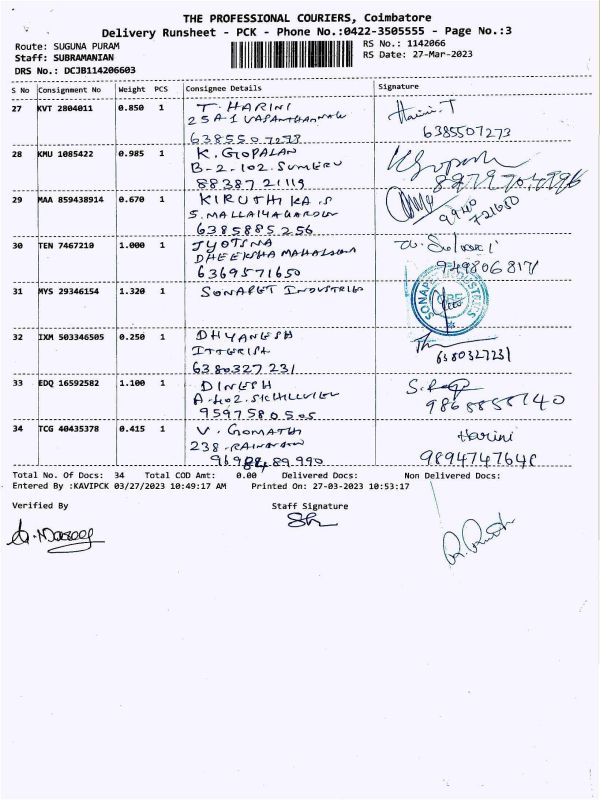 THE PROFESSIONAL COURIERS, Coimbatore
Delivery Runsheet - PCK - Phone No.:0422-3505555 - Page No.:3
Route: SUGUNA PURAM
RS No.: 1142066
Staff: SUBRAMANIAN
RS Date: 27-Mar-2023
DRS No.: DCJB114206603
S No Consignment No Weight PCS Consignee Details Signature
27 KVT 2804011 0.850 1 T. HARINI Harini.T
25A-1
6385507273 6385507273
28 KMU 1085422 0.985 1 K. GOPALAN
B-2-102. SUMERU
88387 21119
29 MAA 859438914 0.670 1 KIRUTHIKA.S
5. 9940
6385885256 721650
30 TEN 7467210 1.000 1 JYOTSNA
DHEEKSHA
6369571650 949806817
31 MYS 29346154 1.320 1 SONAPET INDUSTRIES
32 IXM 503346505 0.250 1 DHYANESH
6380327231 6380327231
33 EDQ 16592582 1.100 1 DINESH
A-402.
9597580505
34 TCG 40435378 0.415 1 V. GOMATHI Harini
238-
9894747648
Total No. Of Docs: 34 Total COD Amt: 0.00 Delivered Docs: Non Delivered Docs:
Entered By :KAVIPCK 03/27/2023 10:49:17 AM Printed On: 27-03-2023 10:53:17
Verified By Staff Signature